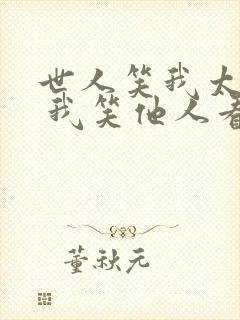 世人笑我太
我笑他人看
董秋元